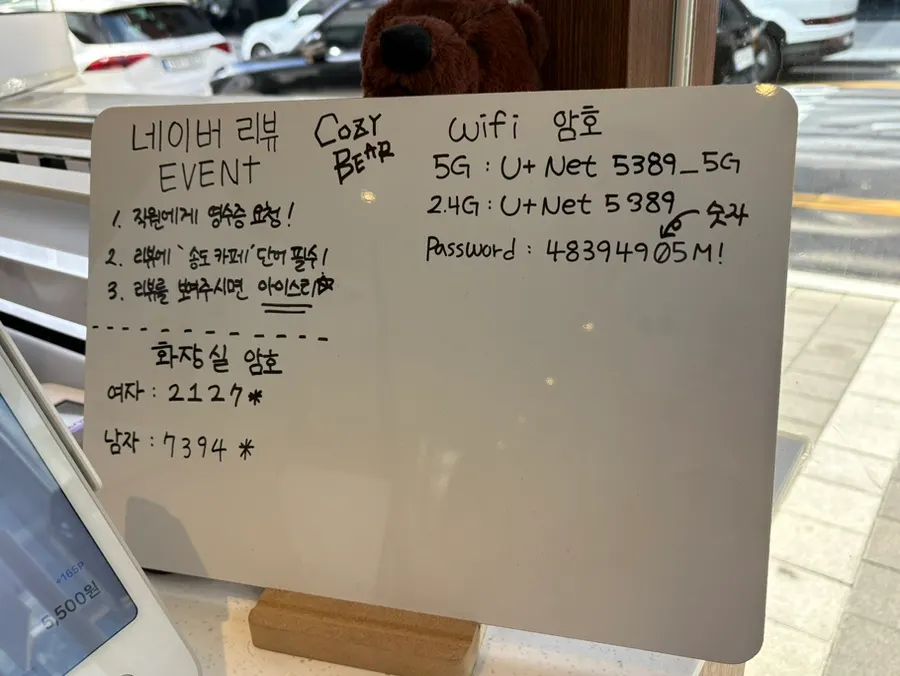 네이버 리뷰
EVENT
COZY
BEAR
1. 직원에게 영수증 요청!
2. 리뷰에 '송도 카페' 단어 필수!
3. 리뷰를 보여주시면 아이스티☆
화장실 암호
여자 : 2127*
남자 : 7394 *
wifi 암호
5G : U+ Net 5389_5G
2.4G : U+Net 5389
숫자
Password : 48394905M!
+165P
5,500원